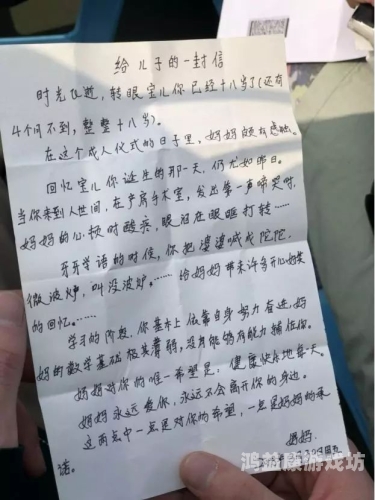 给儿子的一封信
时光飞逝，转眼宝儿你已经十八岁了（还有
4个月不到，整整十八岁）。
在这个成人仪式的日子里，妈妈颇有感触。
回忆宝儿你诞生的那一天，仍尤如昨日。
当你来到人世间，在产房手术室，发出第一声啼哭时，
妈妈的心顿时酸疼，眼泪在眼眶打转……
牙牙学语的时候，你把婆婆喊成陀陀.
微波炉，叫没波炉。……给妈妈带来许多开心好笑
的回忆。……
学习的阶段，你基本上依靠自身努力奋进，妈
妈的数学基础极其薄弱，没有能够有能力辅佐你。
妈妈对你的唯一希望是：健康快乐地每一天。
妈妈永远爱你，永远不会离开你的身边。
这两点中一点是对你的希望，一点是妈妈的承
诺。
妈妈.
鸿益康游戏坊